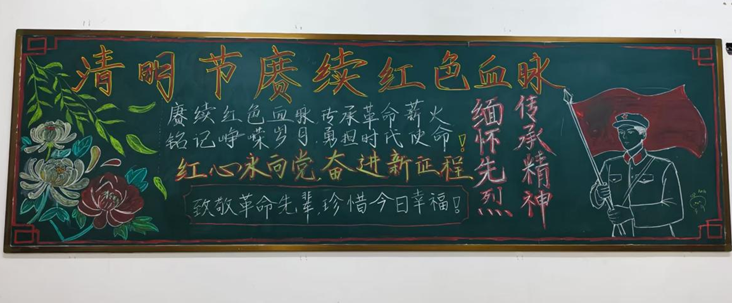 清明节赓续红色血脉
赓续红色血脉 传承革命薪火
铭记峥嵘岁月,勇担时代使命!
红心永向党,奋进新征程
致敬革命先辈,珍惜今日幸福!
缅怀先烈
传承精神